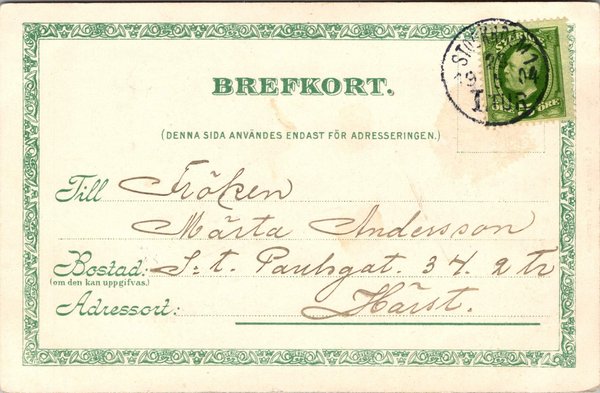 BREFKORT.
(DENNA SIDA ANVÄNDES ENDAST FÖR ADRESSERINGEN.)
STOCKHOLM 1
04
Till Fröken
Märta Andersson
Bostad: S:t. Paulsgat. 34. 2 tr
(om den kan uppgifvas.)
Adressort: Härst.
ÖRE